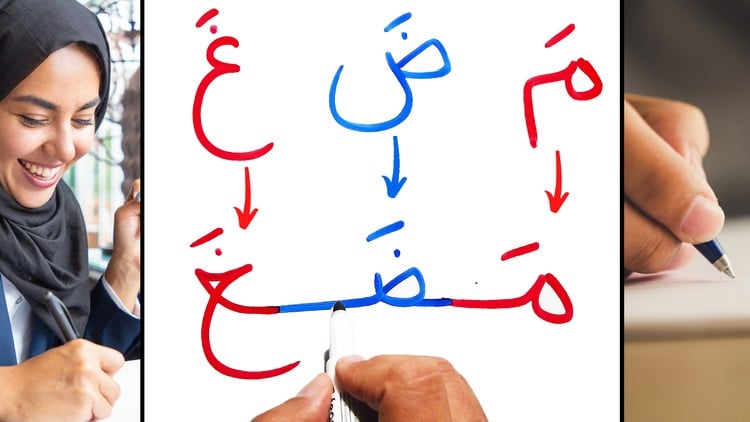 مَ ضَ غَ
مَضَغَ